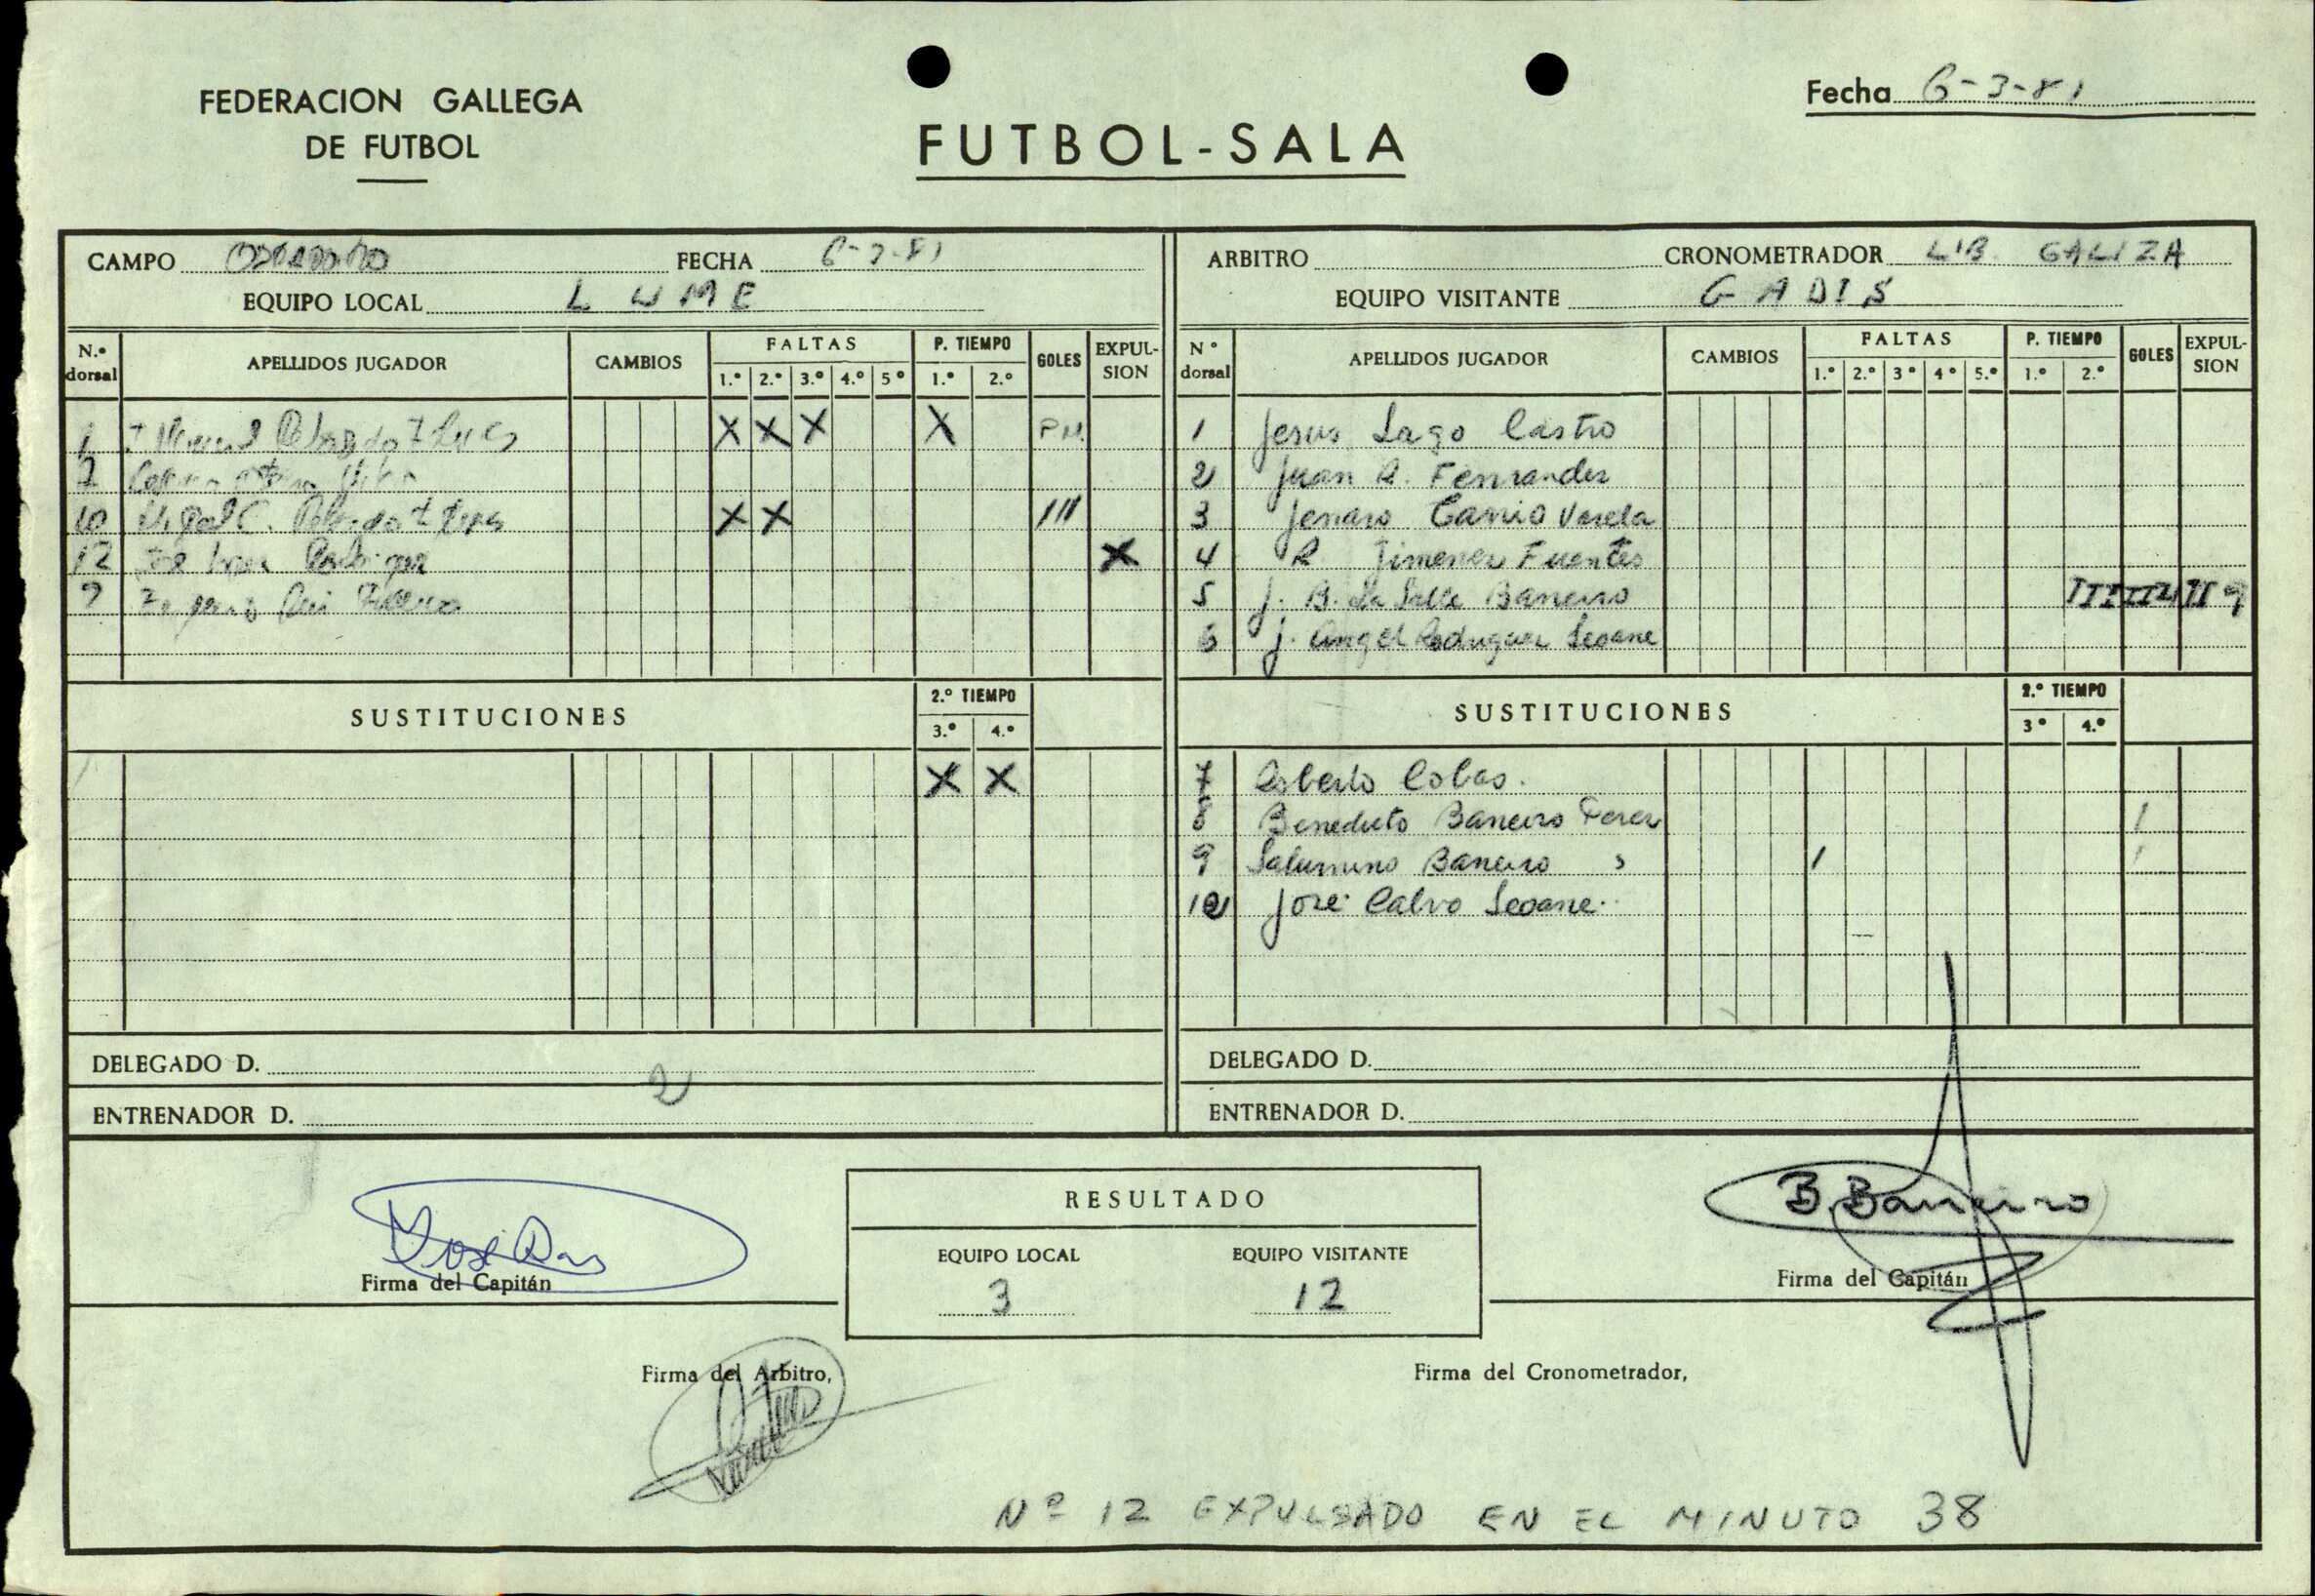 FEDERACION GALLEGA
DE FUTBOL
FUTBOL-SALA
Fecha 6-3-81
CAMPO FECHA 6-3-81
EQUIPO LOCAL LUME
N.º dorsal APELLIDOS JUGADOR CAMBIOS FALTAS P. TIEMPO GOLES EXPULSION
1.º 2.º 3.º 4.º 5º 1.º 2.º
1 X X X X
10 X X III
12 X
SUSTITUCIONES 2.º TIEMPO
3.º 4.º
X X
DELEGADO D.
2
ENTRENADOR D.
ARBITRO CRONOMETRADOR LIB. GALIZA
EQUIPO VISITANTE GADIS
Nº dorsal APELLIDOS JUGADOR CAMBIOS FALTAS P. TIEMPO GOLES EXPULSION
1.º 2.º 3º 4º 5.º 1.º 2.º
1 Jesus Lago Castro
2 Juan R. Fernandez
3 Jenaro Varela
4 R. Jimenez Fuentes
5 J. B. La Salle Barreiro 9
6 J. Angel Rodriguez Seoane
SUSTITUCIONES 2.º TIEMPO
3º 4.º
7 Roberto Cobas.
8 Benedicto Barreiro Perez I
9 Saturnino Barreiro " I I
10 Jose Calvo Seoane.
DELEGADO D.
ENTRENADOR D.
José
Firma del Capitán
RESULTADO
EQUIPO LOCAL EQUIPO VISITANTE
3 12
B. Barreiro
Firma del Capitán
Firma del Arbitro,
Firma del Cronometrador,
Nº 12 EXPULSADO EN EL MINUTO 38